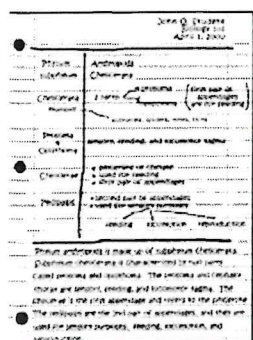 John Q. Student
Biology 101
April 1, 2000
Phylum Arthropoda
subphylum Chelicerata
Chelicerata 2 parts
prosoma
first pair of
appendages
are for feeding
scorpions, spiders, mites, ticks
Prosoma
sensory, feeding, and locomotor tagma
Chelicerae
used for feeding
first pair of appendages
Pedipalps second pair of appendages
used for sensory purposes
feeding locomotion reproduction
Phylum Arthropoda is made up of subphylum Chelicerata.
Subphylum Chelicerata is characterized by two parts
called prosoma and opisthosoma. The prosoma and
are sensory, feeding, and locomotor tagma. The
chelicerae is the first appendage and
The pedipalps are the 2nd pair of appendages, and they are
used for sensory purposes, feeding, locomotion, and
reproduction.